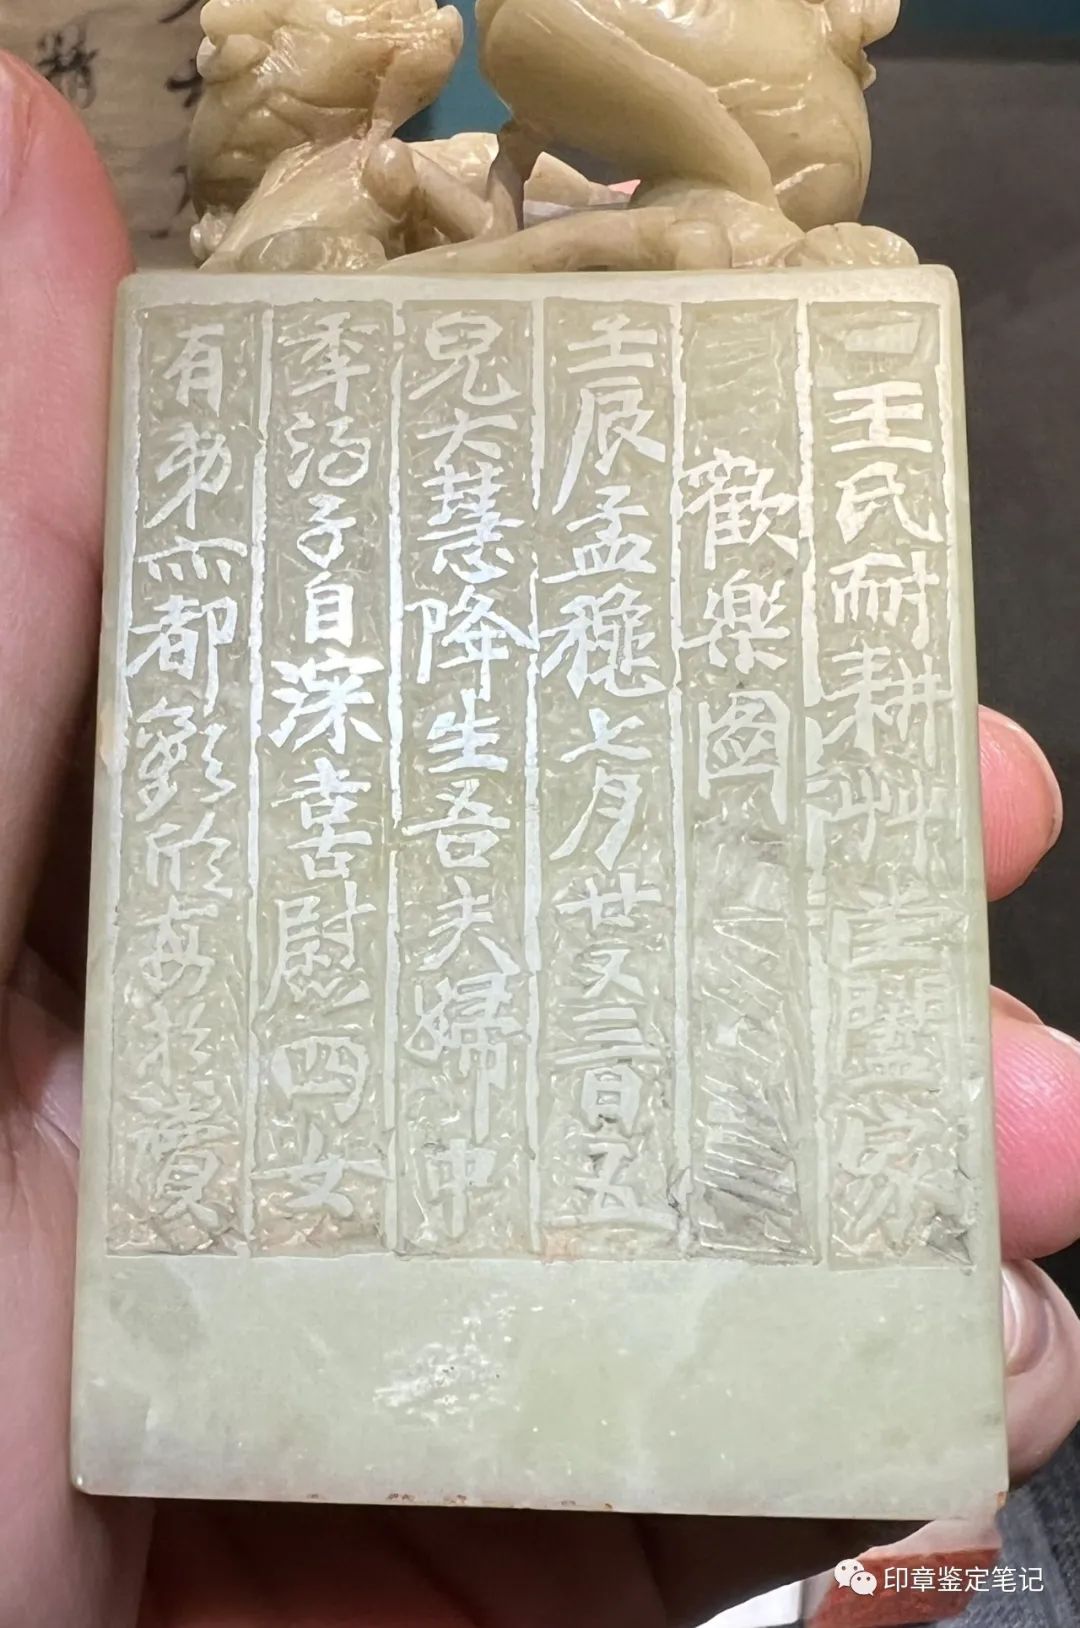 一王氏耐耕艸堂闔家
歡樂圖
壬辰孟穐七月廿又三日五
兒大慧降生吾夫婦中
秊得子自深喜慰四女
有弟亦都歡欣每於賣
印章鉴定笔记